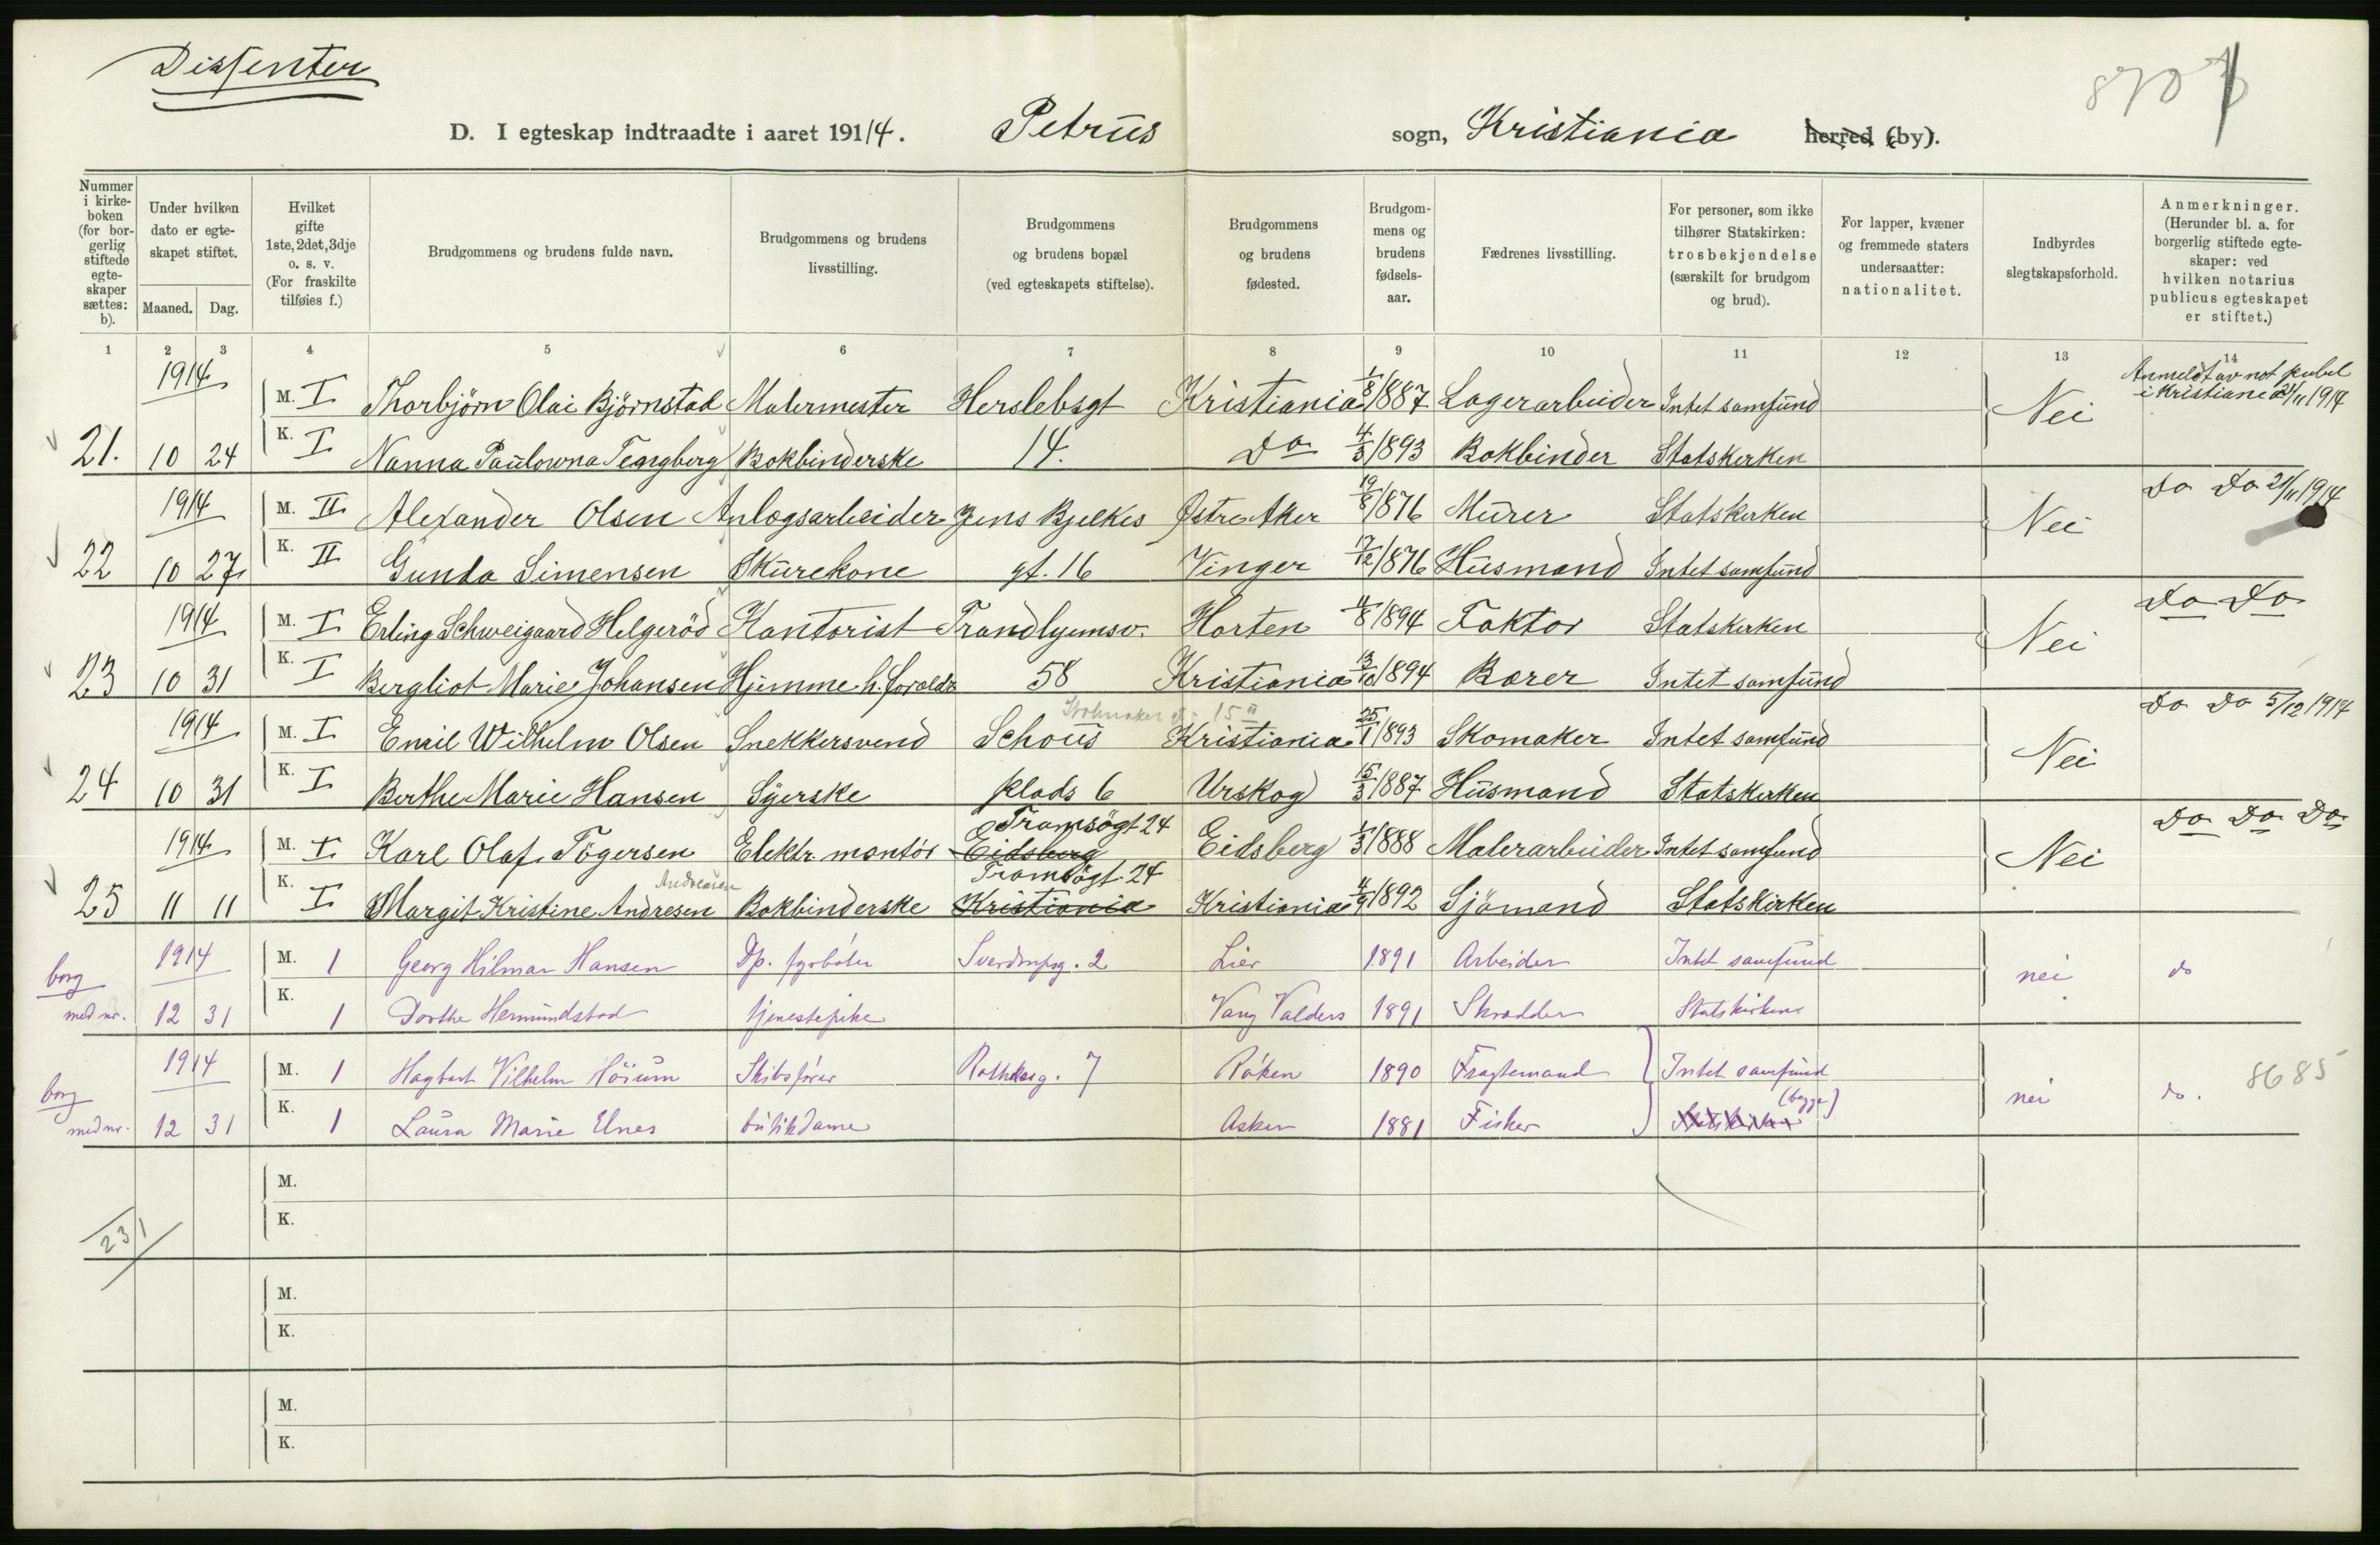 Dissenter
D. I egteskap indtraadte i aaret 1914. Petrus sogn, Kristiania herred (by).
Nummer i kirkeboken (for borgerlig stiftede egteskaper sættes: b).
Under hvilken dato er egteskapet stiftet.
Maaned. Dag.
Hvilket gifte 1ste, 2det, 3dje o. s. v. (For fraskilte tilføies f.)
Brudgommens og brudens fulde navn.
Brudgommens og brudens livsstilling.
Brudgommens og brudens bopæl (ved egteskapets stiftelse).
Brudgommens og brudens fødested.
Brudgommens og brudens fødselsaar.
Fædrenes livsstilling.
For personer, som ikke tilhører Statskirken: trosbekjendelse (særskilt for brudgom og brud).
For lapper, kvæner og fremmede staters undersaatter: nationalitet.
Indbyrdes slegtskapsforhold.
Anmerkninger. (Herunder bl. a. for borgerlig stiftede egteskaper: ved hvilken notarius publicus egteskapet er stiftet.)
1 2 3 4 5 6 7 8 9 10 11 12 13 14
1914 M. I Thorbjörn Olai Björnstad Malermester Herslebsgt Kristiania 1/8/887 Lagerarbeider Intet samfund Nei Anmeldt av not publ i Kristiania 21/11 1914
21. 10 24 K. I Nanna Paulowna Tengberg Bokbinderske 14. Do 4/3/893 Bokbinder Statskirken
1914 M. II Alexander Olsen Anlægsarbeider Jens Bjelkes Østre Aker 19/8/876 Murer Statskirken Nei Do Do 21/11 1914
22 10 27 K. II Gunda Simensen Skurekone gt. 16 Vinger 17/12/876 Husmand Intet samfund
1914 M. I Erling Schweigaard Helgeröd Kontorist Trondhjemsv. Horten 4/8/894 Faktor Statskirken Nei Do Do
23 10 31 K. I Bergliot Marie Johansen Hjemme h. foreldr 58 Kristiania 13/10/894 Bærer Intet samfund
1914 M. I Emil Wilhelm Olsen Snekkersvend Schous Kristiania 25/1/893 Skomaker Intet samfund Nei Do Do 5/12 1914
24 10 31 K. I Berthe Marie Hansen Syerske plads 6 Urskog 15/3/887 Husmand Statskirken
Tromsögt 24
1914 M. I Karl Olaf Tögersen Elektr. montör Eidsberg Eidsberg 1/3/888 Malerarbeider Intet samfund Nei Do Do Do
Andreasen Tromsögt. 24
25 11 11 K. I Margit Kristine Andresen Bokbinderske Kristiania Kristiania 4/9/892 Sjömand Statskirken
borg 1914 M. 1 Georg Hilmar Hansen Dp. fyrböter Sverdrupsg. 2 Lier 1891 Arbeider Intet samfund nei do
med nr. 12 31 K. 1 Dorthe Hermundstad tjenestepike Vang Valders 1891 Skrædder Statskirken
borg 1914 M. 1 Hagbart Vilhelm Höium Skibsförer Rathkesg. 7 Röken 1890 Fragtemand Intet samfund nei do. 8685
(begge)
med nr. 12 31 K. 1 Laura Marie Elnes butikdame Asker 1881 Fisker Statskirken
M.
K.
231
M.
K.
M.
K.